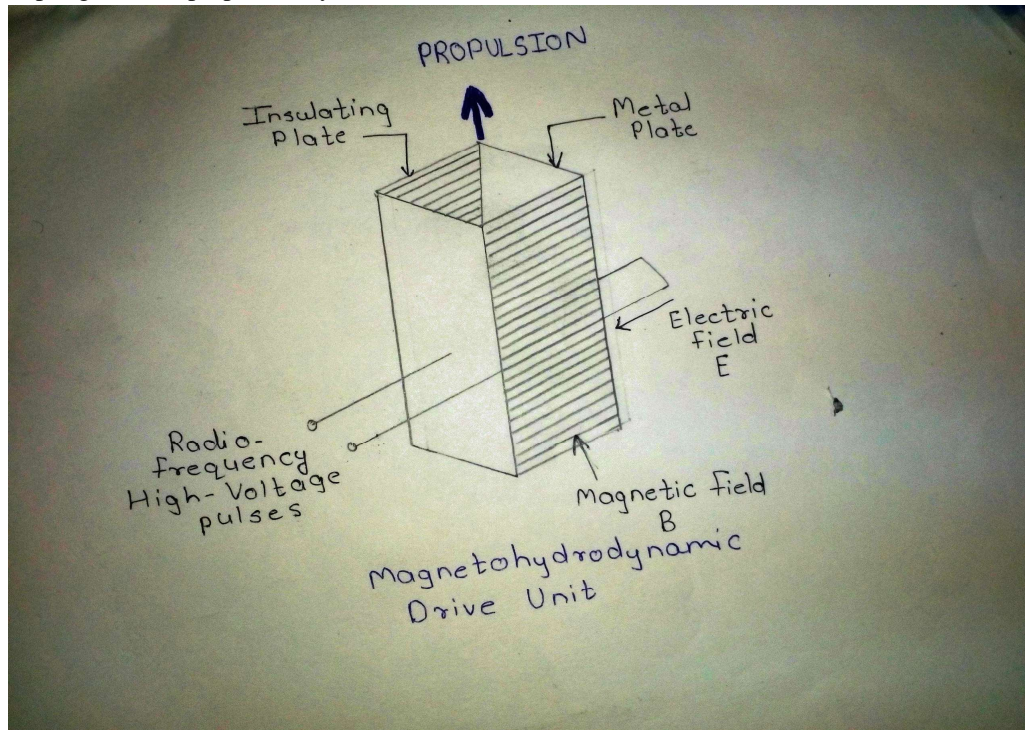 PROPULSION
Insulating
Plate
Metal
Plate
Electric
field
E
Radio-
frequency
High-Voltage
pulses
Magnetic field
B
Magnetohydrodynamic
Drive Unit